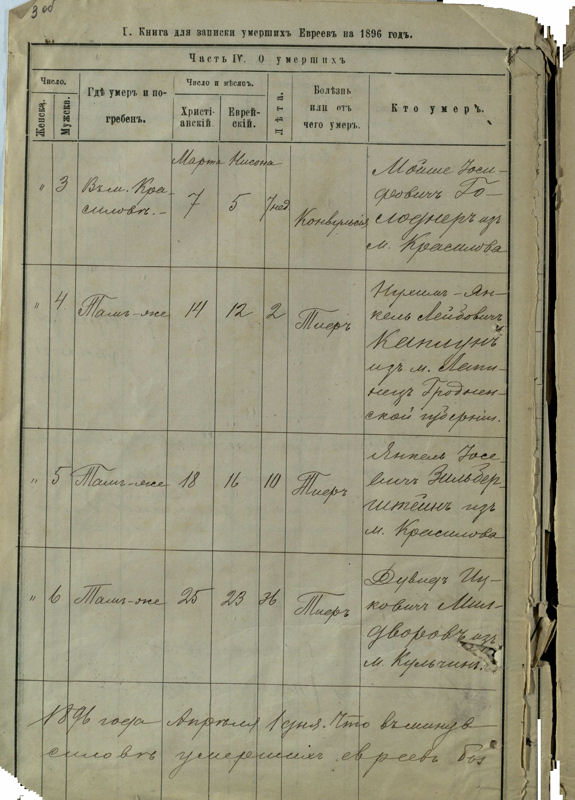 3 об
I. Книга для записки умершихъ Евреевъ на 1896 годъ.
Часть IV. О умершихъ
Число.
Женска.
Мужски.
Гдѣ умеръ и по-
гребенъ.
Число и мѣсяцъ.
Христі-
анскій.
Еврей-
скій.
Лѣта.
Болѣзнь
или отъ
чего умеръ.
Кто умеръ.
Марта Нисона
" 3 Въ м. Кра-
силовѣ.-
7 5 7 нед
Конвульсія
Мойше Іоси-
фовичъ Го-
лоднеръ изъ
м. Красилова
" 4 Тамъ-же 14 12 2 Тифъ
Нухимъ-Ян-
кель Лейбовичъ
Каплунъ
изъ м.
Гроднен-
ской губерніи.
" 5 Тамъ-же 18 16 10 Тифъ
Янкель Іосе-
вичъ Зильбер-
штейнъ изъ
м. Красилова
" 6 Тамъ-же 25 23 36 Тифъ
Дувидъ Иц-
ковичъ Мил-
дворовъ изъ
м. Кульчинъ.
1896 года Апрѣля 1 дня. Что въ минув
силовѣ умершихъ евреевъ